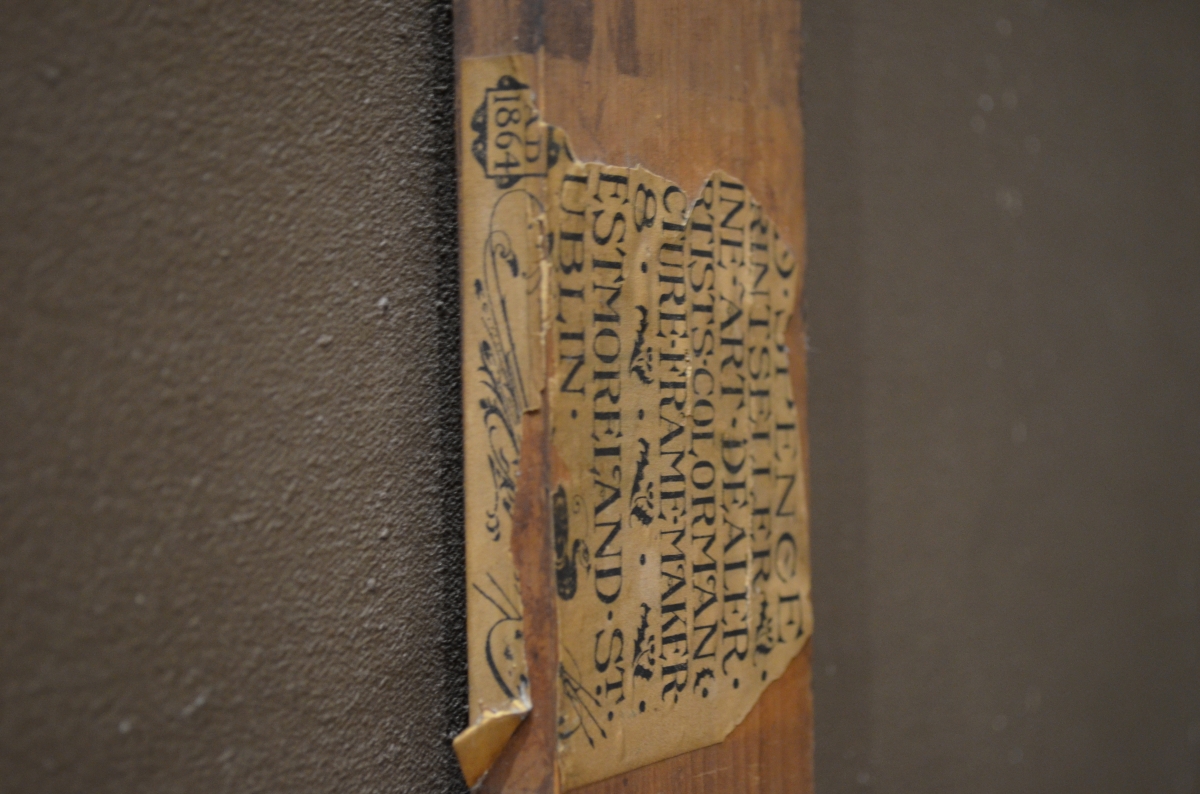 ENCE
RINTSELLER
INE·ART·DEALER·
RTISTS·COLORMAN &·
CTURE·FRAME·MAKER·
8 ·
ESTMORELAND·ST.
UBLIN·
A.D
1864